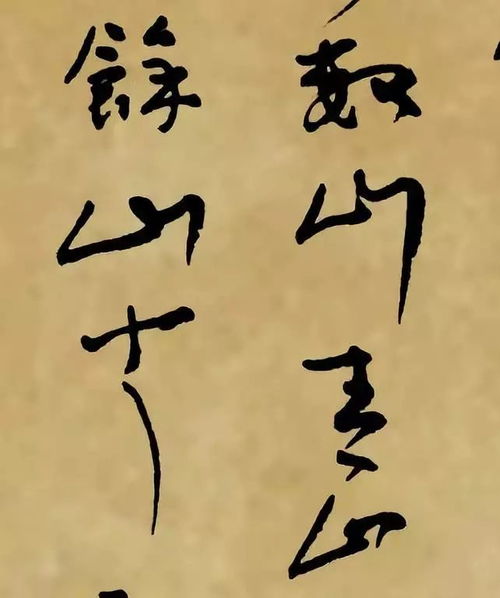 數山青山
餘山十